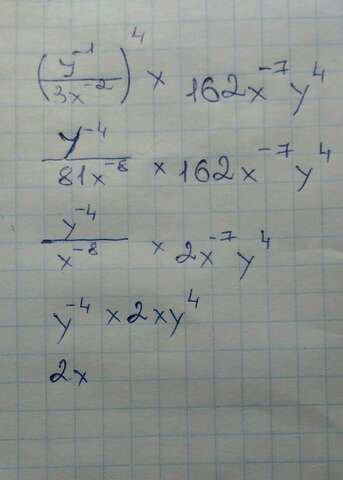 (y⁻¹/3x⁻²)⁴ × 162x⁻⁷y⁴
y⁻⁴/81x⁻⁸ × 162x⁻⁷y⁴
y⁻⁴/x⁻⁸ × 2x⁻⁷y⁴
y⁻⁴ × 2xy⁴
2x